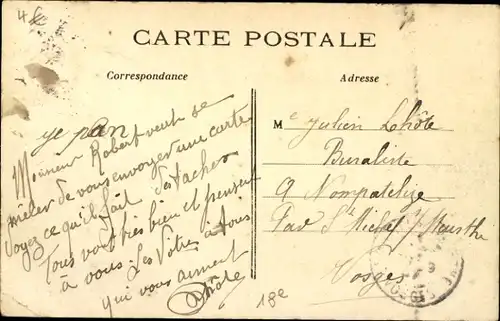 CARTE POSTALE
Correspondance
Adresse
ye pan
Monsieur Robert veut se
mêler de vous envoyer une carte
Voyez ce qu'il fait des taches
Tous vont très bien et pensent
à vous. Les Vôtres à tous
qui vous aiment
Lhôte
18e
Me Julien Lhôte
Buraliste
A Nompatelize
Par St Michel s/ Meurthe
Vosges